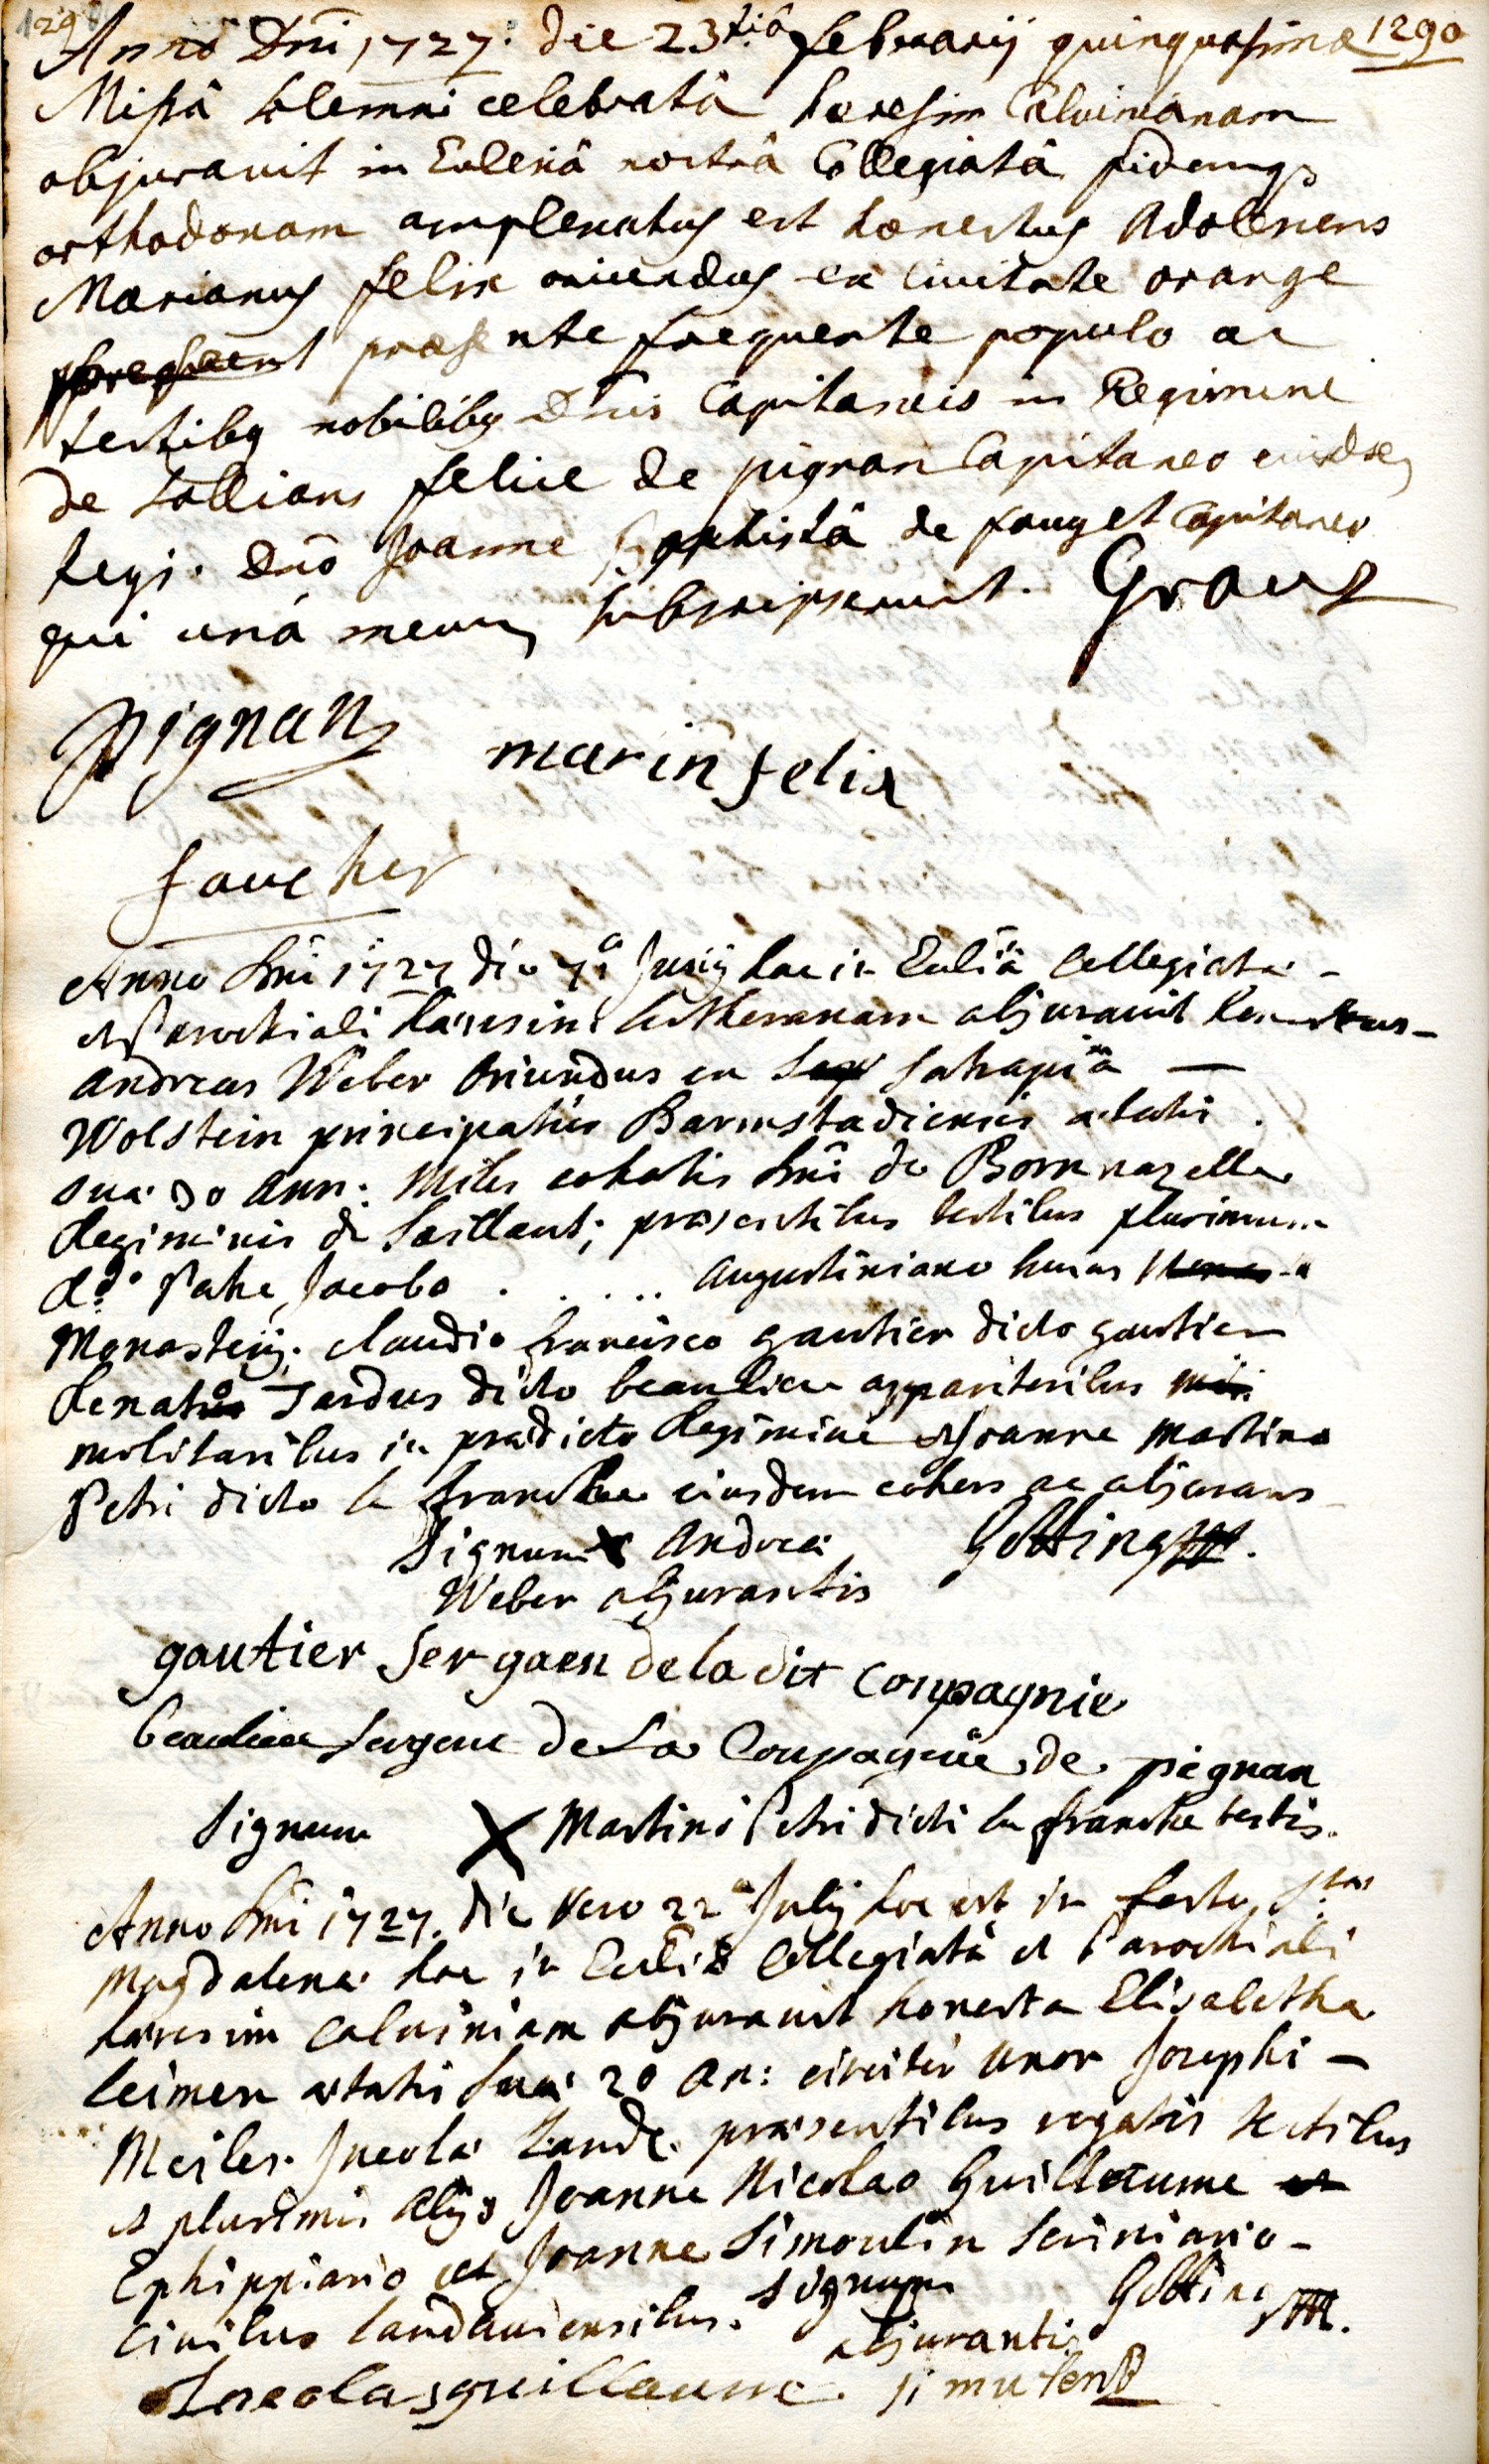 129
1290
Anno Dni 1727: die 23tiâ februarij quinquagesimae
Missâ solemni celebratâ haeresim Calvinianam
abjuravit in Ecclesiâ nostrâ Collegiatâ fidemq3
orthodoxam amplexatus est honestus Adolescens
Marianus felix oriundus ex Civitate orange
praesente frequente populo ac
testibus nobilibus Dnis Capitaneis in Regimine
de feliue de pignan Capitaneo
Regi. Dnô Joanne baptistâ de Capitaneo
qui unâ mecum subscripserunt. Graus
Pignan
marin felix
faucher
Anno Dni 1727 die 7a Junij hac in Ecclîâ Collegiata -
et Parochiali haeresim Lutheranam abjuravit honestus -
Andreas Weber Oriundus ex Satrapiâ —
Wolstein principatus Barmstadiensis aetatis
suae 30 ann: Miles cohortis Dni de Bornnazelle
Regiminis de ; praesentibus testibus plurimum
Rdo Patre Jacobo . . . . . Augustiniano huius
Monasterij. claudio francisco gautier dicto gautier
Renato Jardus dicto beaulieu apparitoribus
militaribus in praedicto Regimine et Joanne Martino
Petri dicto la franche eiusdem cohors ac abjurans
Signum X Andreae Gotting
Weber abjurantis
gautier sergaen de la dit Conpagnie
beaulieu sergent de La Conpagnie de pignan
Signum X Martini Petri dicti la franche testis.
Anno Dni 1727. die vero 22a Julij hoc est in festo Stae
Magdalenae hac in Ecclia Collegiatâ et Parochiali
haeresim calviniam abjuravit honesta Elisabetha
Leimen aetatis suae 20 an: circiter uxor Josephi -
Meiler. Incolae Land. praesentibus rogatis testibus
et plurimis alijs Joanne Nicolao Guillaume
Ephippiario et Joanne Simoulin scriniario -
Civibus landaviensibus. Signum Gotting
abjurantis
guillaume. si mulens